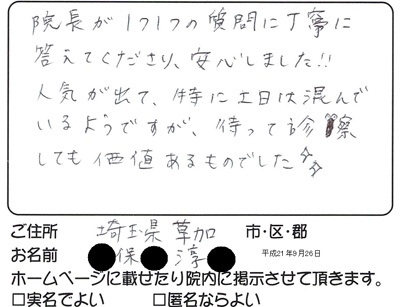 院長が1つ1つの質問に丁寧に
答えてくださり、安心しました!!
人気が出て、特に土日は混んで
いるようですが、待って診察
しても価値あるものでした☆
ご住所 埼玉県 草加 市・区・郡
お名前 ●保●淳● 平成21年9月26日
ホームページに載せたり院内に掲示させて頂きます。
□実名でよい □匿名ならよい